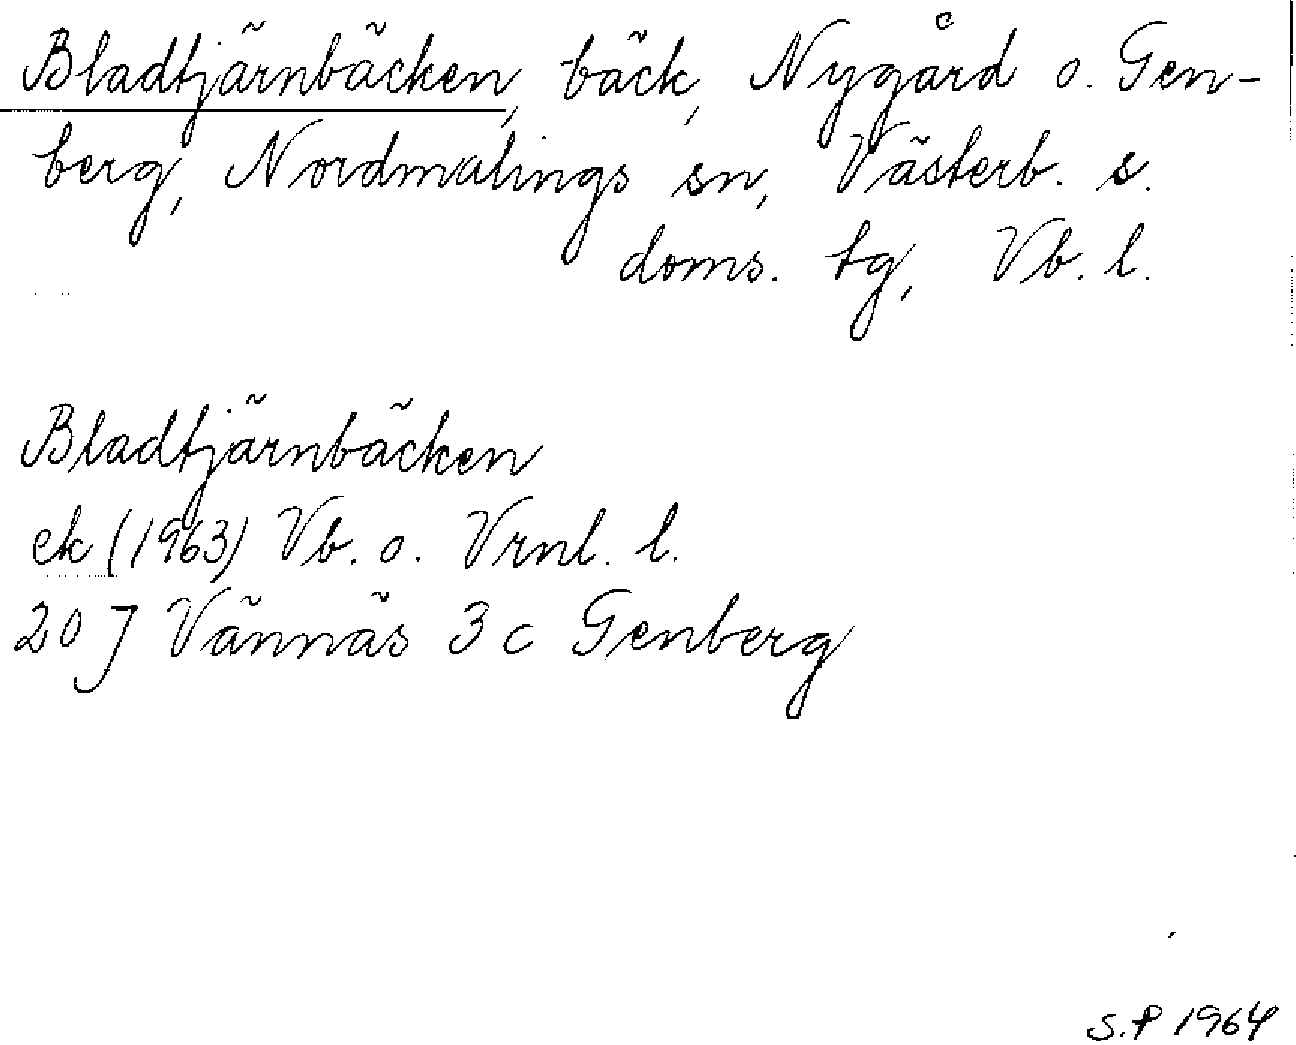 Bladtjärnbäcken, bäck, Nygård o. Gen-
berg, Nordmalings sn, Västerb. s.
doms. tg, Vb. l.
Bladtjärnbäcken
ek (1963) Vb. o. Vrnl. l.
20 J Vännäs 3 c Genberg
S.P 1964